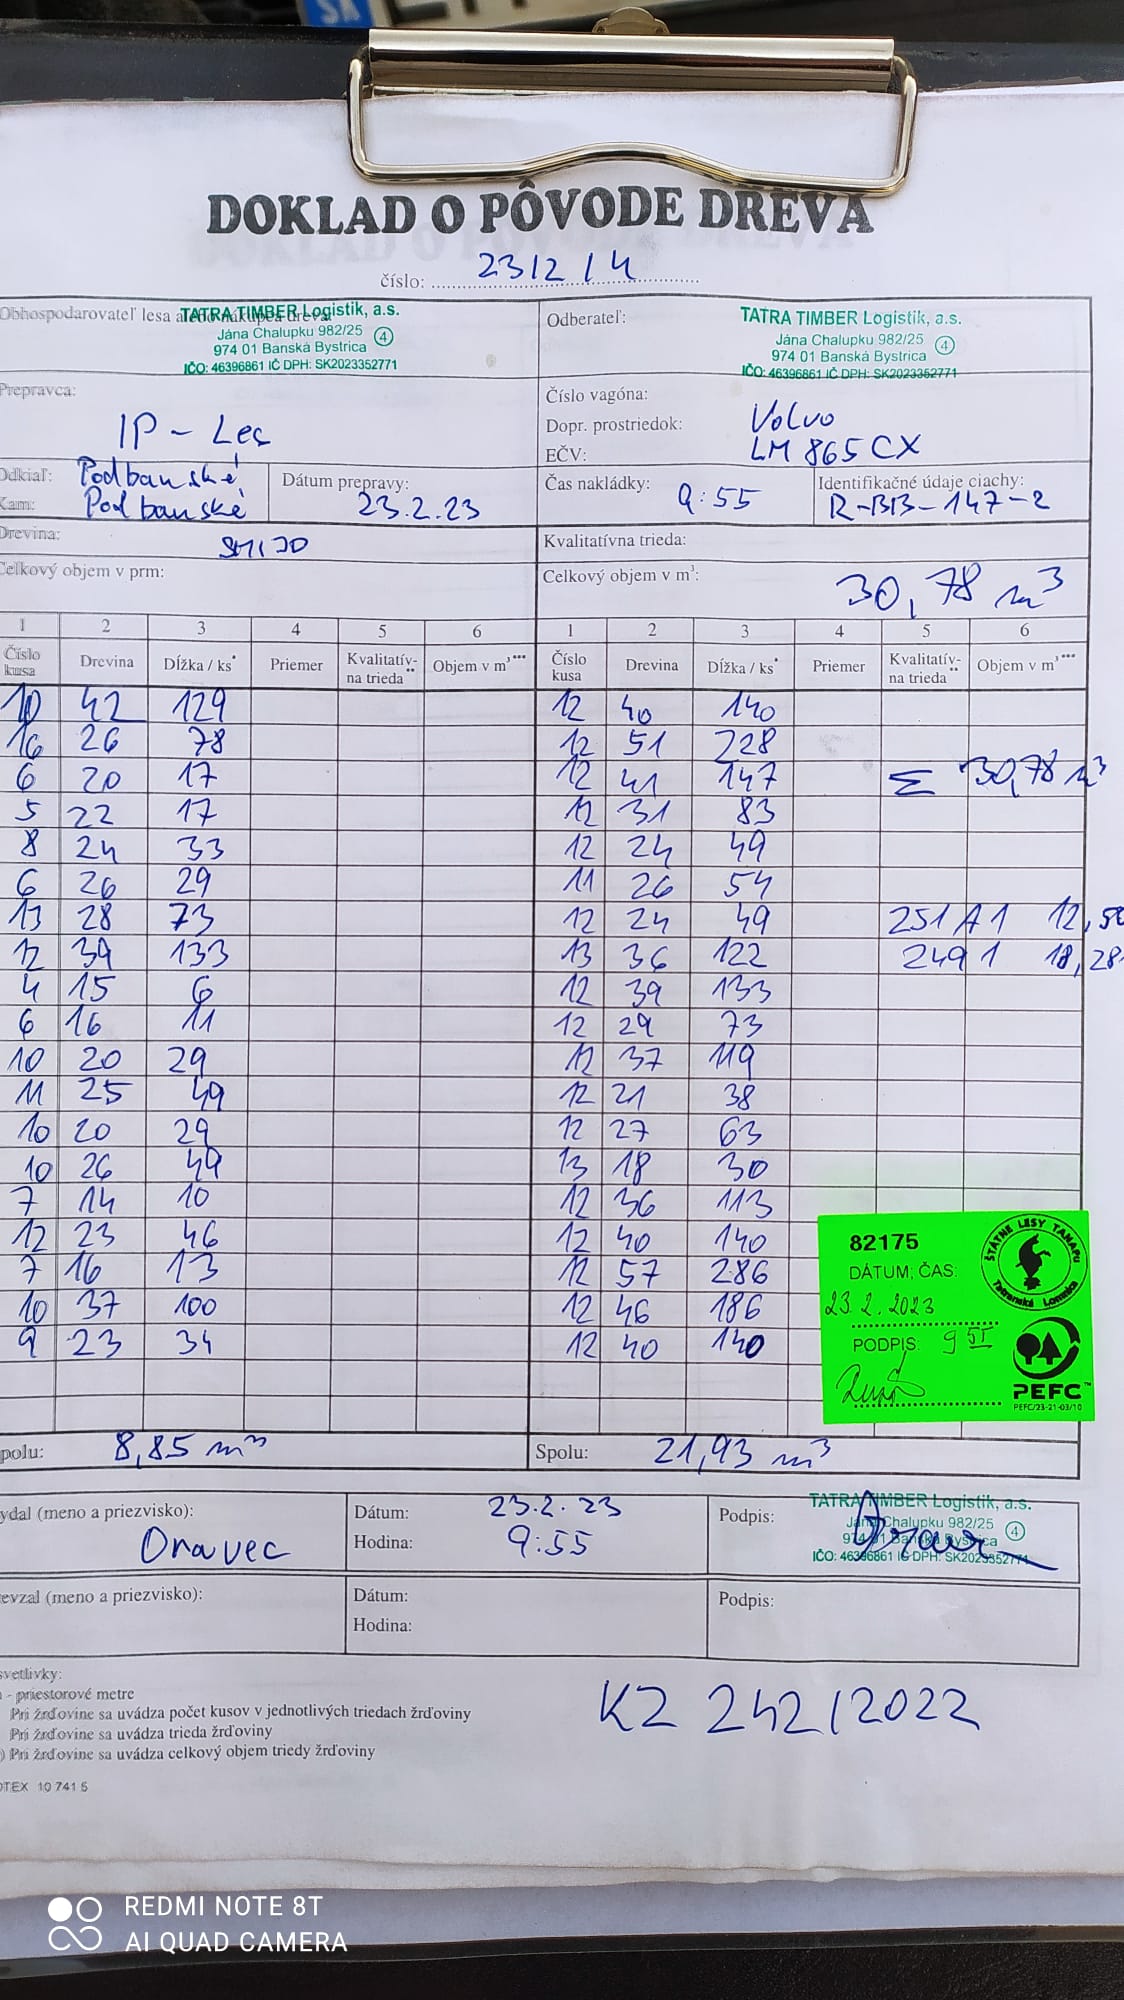 SK
DOKLAD O PÔVODE DREVA
číslo: 23/2/4
Obhospodarovateľ lesa alebo nákupca dreva:
TATRA TIMBER Logistik, a.s.
Jána Chalupku 982/25
974 01 Banská Bystrica
4
IČO: 46396861 IČ DPH: SK2023352771
Odberateľ:
TATRA TIMBER Logistik, a.s.
Jána Chalupku 982/25
974 01 Banská Bystrica
4
IČO: 46396861 IČ DPH: SK2023352771
Prepravca:
IP - Les
Číslo vagóna:
Dopr. prostriedok: Volvo
EČV: LM 865 CX
Odkiaľ: Podbanské
Kam: Podbanské
Dátum prepravy:
23.2.23
Čas nakládky: 9:55
Identifikačné údaje ciachy:
R-BB-147-2
Drevina:
Kvalitatívna trieda:
Celkový objem v prm:
Celkový objem v m³: 30,78 m³
1 2 3 4 5 6 1 2 3 4 5 6
Číslo kusa Drevina Dĺžka / ks* Priemer Kvalitatív-na trieda** Objem v m³*** Číslo kusa Drevina Dĺžka / ks* Priemer Kvalitatív-na trieda** Objem v m³***
10 42 129 12 40 140
16 26 78 12 51 228
6 20 17 12 41 147 Σ 30,78 m³
5 22 17 12 31 83
8 24 33 12 24 49
6 26 29 11 26 54
13 28 73 12 24 49 251 A1 12,50
12 39 133 13 36 122 249 1 18,28
4 15 6 12 39 133
6 16 11 12 29 73
10 20 29 12 37 119
11 25 49 12 21 38
10 20 29 12 27 63
10 26 49 13 18 30
7 14 10 12 36 113
12 23 46 12 40 140
7 16 13 12 57 286
10 37 100 12 46 186
9 23 34 12 40 140
82175
DÁTUM, ČAS:
23.2.2023
PODPIS: 9 55
ŠTÁTNE LESY TANAPU
Tatranská Lomnica
PEFC™
PEFC/23-21-03/10
polu: 8,85 m³
Spolu: 21,93 m³
ydal (meno a priezvisko):
Oravec
Dátum: 23.2.23
Hodina: 9:55
Podpis:
TATRA TIMBER Logistik, a.s.
Jána Chalupku 982/25
974 01 Banská Bystrica
4
IČO: 46396861 IČ DPH: SK2023352771
evzal (meno a priezvisko):
Dátum:
Hodina:
Podpis:
svetlivky:
- priestorové metre
Pri žrďovine sa uvádza počet kusov v jednotlivých triedach žrďoviny
Pri žrďovine sa uvádza trieda žrďoviny
) Pri žrďovine sa uvádza celkový objem triedy žrďoviny
KZ 242/2022
OTEX 10 741 5
REDMI NOTE 8T
AI QUAD CAMERA